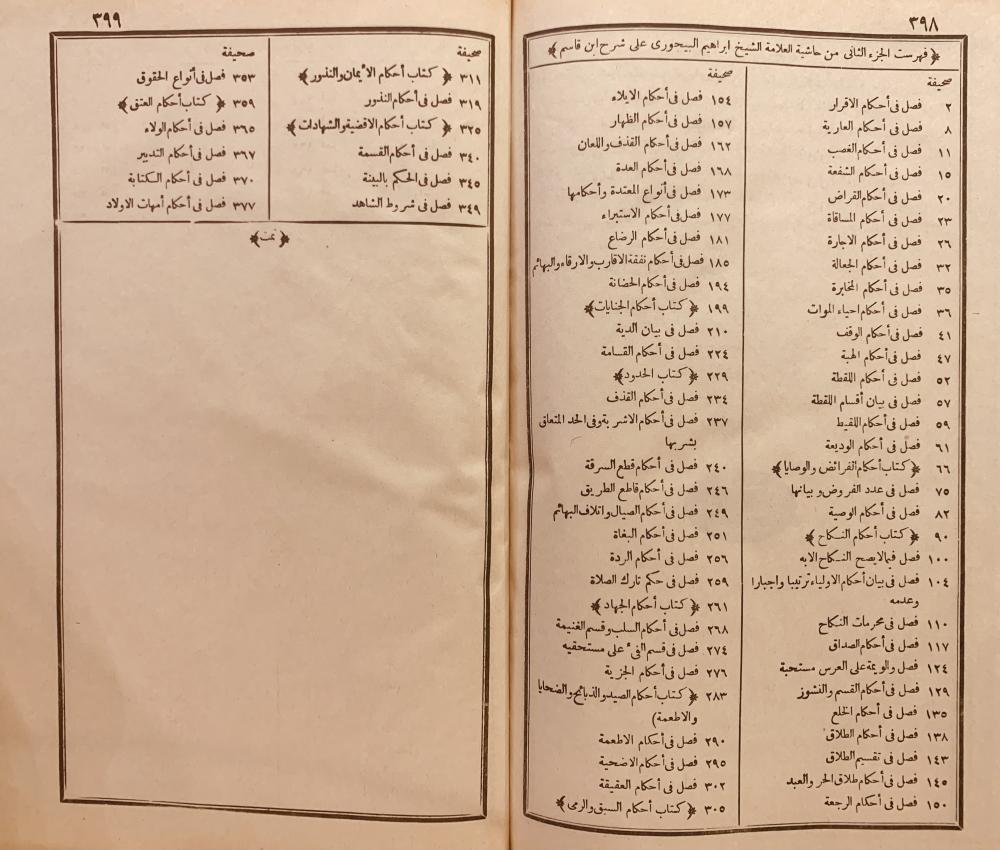 ٣٩٨
﴿فهرست الجزء الثانى من حاشية العلامة الشيخ ابراهيم البيجورى على شرح ابن قاسم﴾
صحيفة
٢ فصل فى أحكام الاقرار
٨ فصل فى أحكام العارية
١١ فصل فى أحكام الغصب
١٥ فصل فى أحكام الشفعة
٢٠ فصل فى أحكام القراض
٢٣ فصل فى أحكام المساقاة
٢٦ فصل فى أحكام الاجارة
٣٢ فصل فى أحكام الجعالة
٣٥ فصل فى أحكام المخابرة
٣٦ فصل فى أحكام احياء الموات
٤١ فصل فى أحكام الوقف
٤٧ فصل فى أحكام الهبة
٥٢ فصل فى أحكام اللقطة
٥٧ فصل فى بيان أقسام اللقطة
٥٩ فصل فى أحكام اللقيط
٦١ فصل فى أحكام الوديعة
٦٦ ﴿كتاب أحكام الفرائض والوصايا﴾
٧٥ فصل فى عدد الفروض وبيانها
٨٢ فصل فى أحكام الوصية
٩٠ ﴿كتاب أحكام النكاح﴾
١٠٠ فصل فيما لا يصح النكاح الابه
١٠٤ فصل فى بيان أحكام الاولياء ترتيبا واجبارا
وعدمه
١١٠ فصل فى محرمات النكاح
١١٧ فصل فى أحكام الصداق
١٢٤ فصل والويمة على العرس مستحبة
١٢٩ فصل فى أحكام القسم والنشوز
١٣٥ فصل فى أحكام الخلع
١٣٨ فصل فى أحكام الطلاق
١٤٣ فصل فى تقسيم الطلاق
١٤٥ فصل فى أحكام طلاق الحر والعبد
١٥٠ فصل فى أحكام الرجعة
صحيفة
١٥٤ فصل فى أحكام الايلاء
١٥٧ فصل فى أحكام الظهار
١٦٢ فصل فى أحكام القذف واللعان
١٦٨ فصل فى أحكام العدة
١٧٣ فصل فى أنواع المعتدة وأحكامها
١٧٧ فصل فى أحكام الاستبراء
١٨١ فصل فى أحكام الرضاع
١٨٥ فصل فى أحكام نفقة الاقارب والارقاء والبهائم
١٩٤ فصل فى أحكام الحضانة
١٩٩ ﴿كتاب أحكام الجنايات﴾
٢١٠ فصل فى بيان الدية
٢٢٤ فصل فى أحكام القسامة
٢٢٩ ﴿كتاب الحدود﴾
٢٣٤ فصل فى أحكام القذف
٢٣٧ فصل فى أحكام الاشربة وفى الحد المتعلق
بشربها
٢٤٠ فصل فى أحكام قطع السرقة
٢٤٦ فصل فى أحكام قاطع الطريق
٢٤٩ فصل فى أحكام الصيال واتلاف البهائم
٢٥١ فصل فى أحكام البغاة
٢٥٦ فصل فى أحكام الردة
٢٥٩ فصل فى حكم تارك الصلاة
٢٦١ ﴿كتاب أحكام الجهاد﴾
٢٦٨ فصل فى أحكام السلب وقسم الغنيمة
٢٧٤ فصل فى قسم الفىء على مستحقيه
٢٧٦ فصل فى أحكام الجزية
٢٨٣ ﴿كتاب أحكام الصيد والذبائح والضحايا
والاطعمة)
٢٩٠ فصل فى أحكام الاطعمة
٢٩٥ فصل فى أحكام الاضحية
٣٠٢ فصل فى أحكام العقيقة
٣٠٥ ﴿كتاب أحكام السبق والرمى﴾
٣٩٩
صحيفة
٣١١ ﴿كتاب أحكام الأيمان والنذور﴾
٣١٩ فصل فى أحكام النذور
٣٢٥ ﴿كتاب أحكام الاقضية والشهادات﴾
٣٤٠ فصل فى أحكام القسمة
٣٤٥ فصل فى الحكم بالبينة
٣٤٩ فصل فى شروط الشاهد
صحيفة
٣٥٣ فصل فى أنواع الحقوق
٣٥٩ ﴿كتاب أحكام العتق﴾
٣٦٥ فصل فى أحكام الولاء
٣٦٧ فصل فى أحكام التدبير
٣٧٠ فصل فى أحكام الكتابة
٣٧٧ فصل فى أحكام أمهات الاولاد
﴿تمت﴾